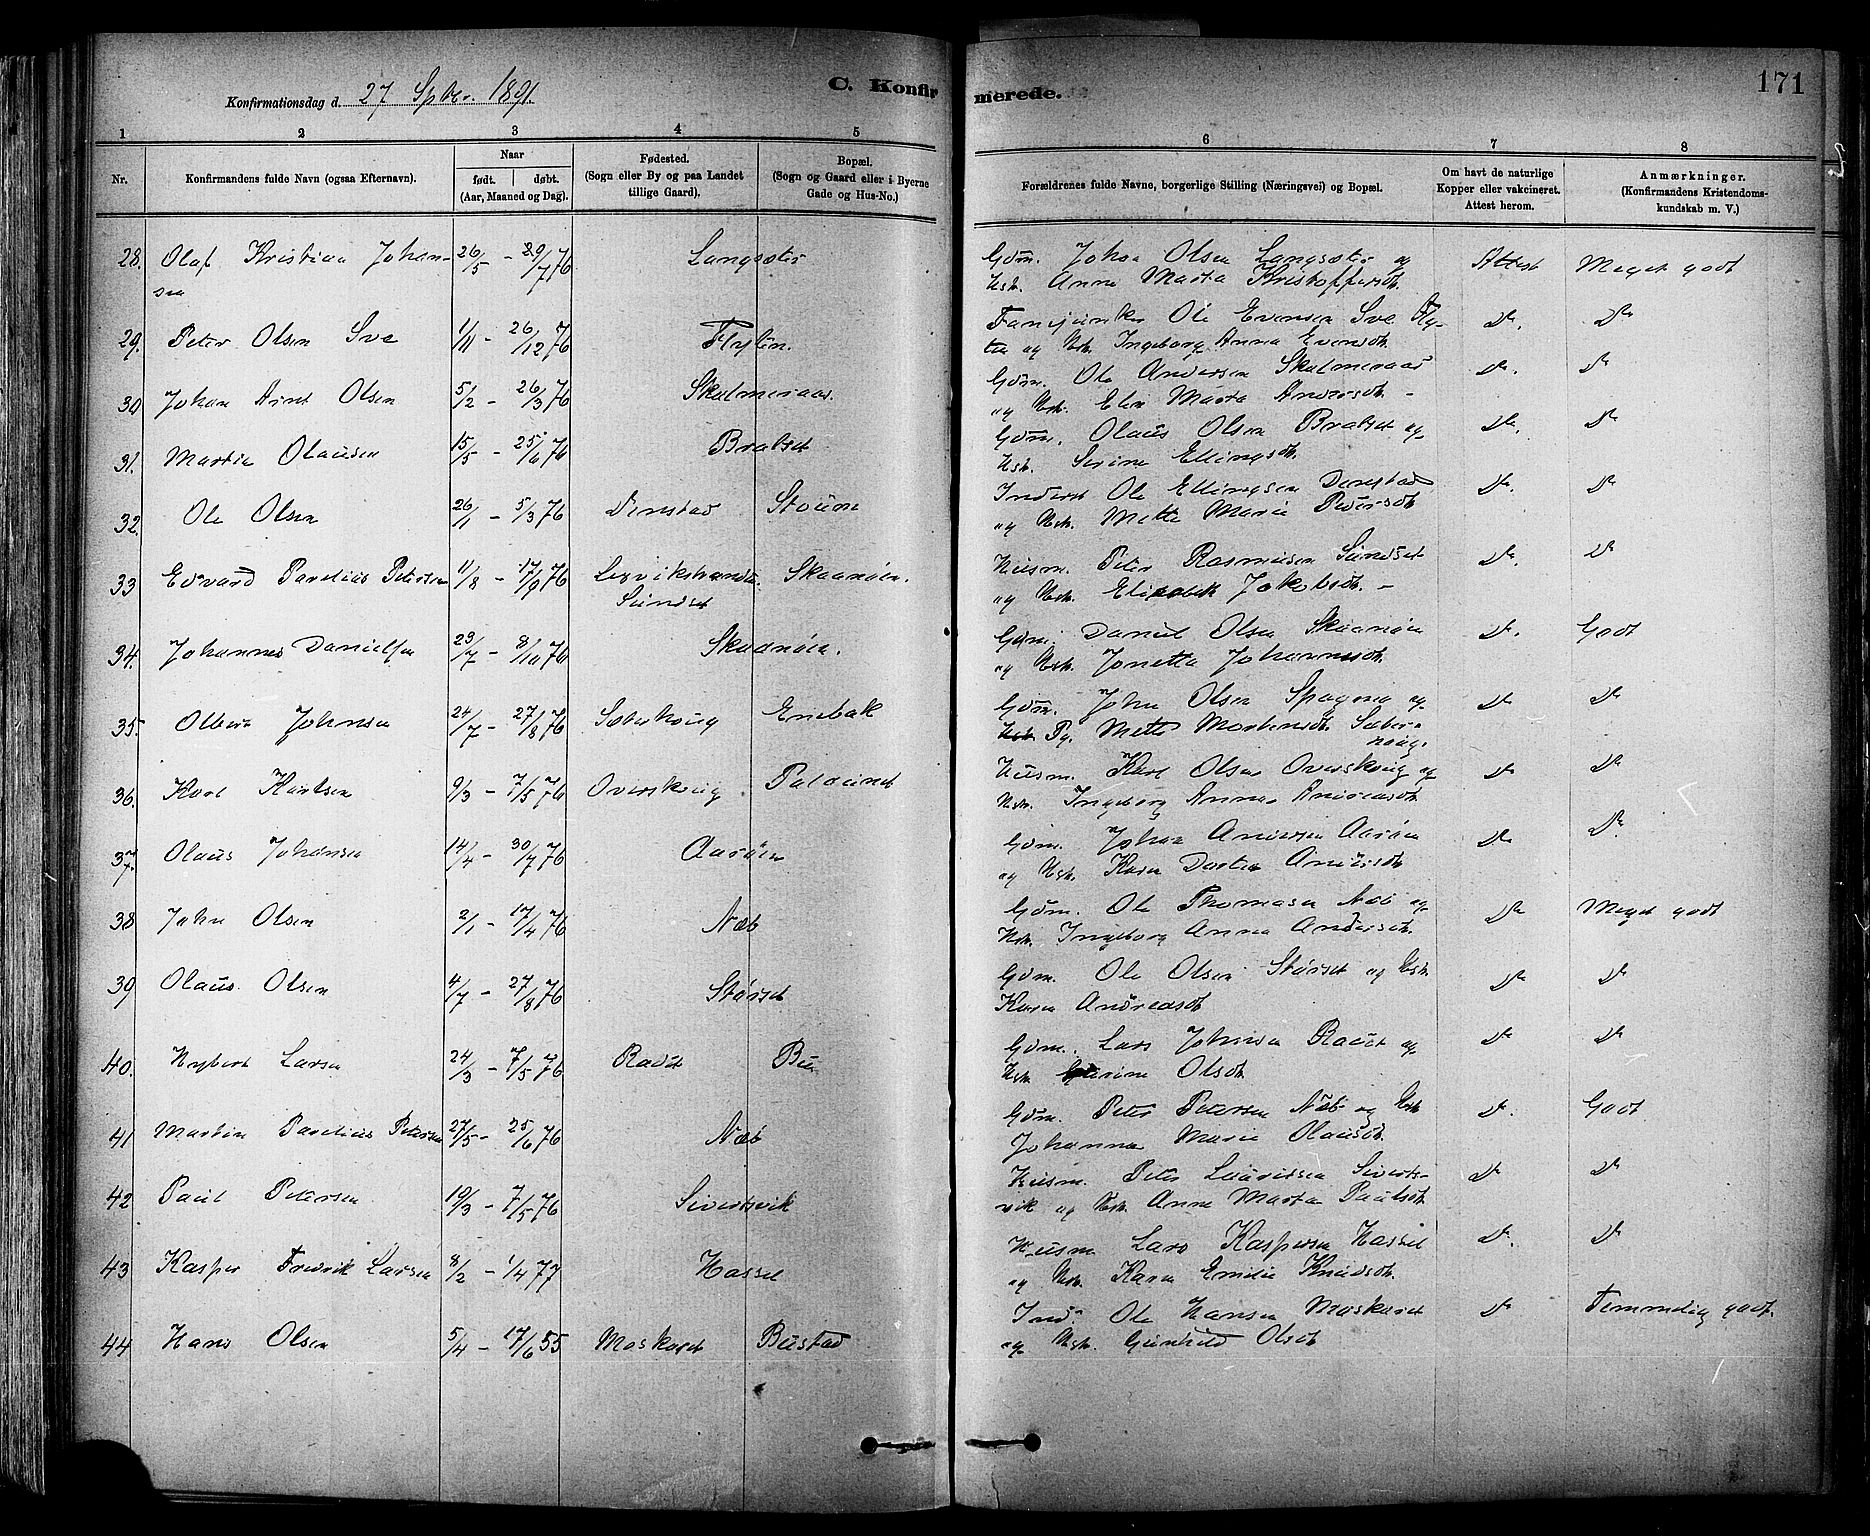 171
Konfirmationsdag d. 27 Septbr. 1891.
C. Konfirmerede.
1 2 3 4 5 6 7 8
Nr.
Konfirmandens fulde Navn (ogsaa Efternavn).
Naar
født. døbt.
(Aar, Maaned og Dag).
Fødested.
(Sogn eller By og paa Landet
tillige Gaard).
Bopæl.
(Sogn og Gaard eller i Byerne
Gade og Hus-No.)
Forældrenes fulde Navne, borgerlige Stilling (Næringsvei) og Bopæl.
Om havt de naturlige
Kopper eller vakcineret.
Attest herom.
Anmærkninger.
(Konfirmandens Kristendoms-
kundskab m. V.)
28. Olaf Kristian Johan- 26/5 - 29/7 76 Langsæter Gdm. Johan Olsen Langsæter og Attest Meget godt
sen Hst. Anne Marta Kristoffersdt.
29. Peter Olsen Sve 1/11 - 26/12 76 Flyten. Ole Evensen Sve Fly- Do. Do
ten og Hst. Ingeborg Anna Evensdt.
30 Johan Arnt Olsen 5/2 - 26/3 76 Skalmeraas. Gdm. Ole Andersen Skalmeraas Do. Do
og Hst. Elen Marta Andersdt.
31. Martin Olausen 15/5 - 25/6 76 Bratset Gdm. Olaus Olsen Bratset og Do. Do
Hst. Serine Ellingsdt.
32. Ole Olsen 26/1 - 5/3 76 Denstad Inderst Ole Ellingsen Denstad Do. Do
og Hst. Mette Marie Pedersdt
33 Edvard Parelius Petersen 11/8 - 17/9 76 Skaanøien. Husm. Peter Rasmusen Sundset Do. Do
Sundset og Hst. Elisabeth Jakobsdt.
34. Johannes Danielsen 23/7 - 8/10 76 Skaanøien. Gdm. Daniel Olsen Skaanøien Do. Godt
og Hst. Jonetta Johannesdt.
35. Johnsen 24/7 - 27/8 76 Sæterhoug Enebak Gdm. John Olsen og Do Do
Pg. Mette Mortensdt. Sæter-
houg.
36. Karl Karlsen 9/3 - 7/5 76 Overskoug Husm. Karl Olsen Overskoug og Do Do
Hst. Ingeborg Anna Andreasdt
37. Olaus Johansen 14/4 - 30/7 76 Aarøien Gdm. Johan Andersen Aarøien Do Do
og Hst. Karen Dortea Andersdt
38 John Olsen 2/1 - 17/4 76 Næb Gdm. Ole Thomasen Næb og Do Meget godt
Hst. Ingeborg Anna Andersdt.
39 Olaus Olsen 4/7 - 27/8 76 Størset Gdm. Ole Olsen Størset og Hst. Do Do
Karen Andreasdt
40. Larsen 24/3 - 7/5 76 Bu Gdm. Lars Johnsen og Do Do
Hst. Olsdt
41 Martin Parelius Petersen 27/5 - 25/6 76 Næb Gdm. Peter Petersen Næb og Hst. Do. Godt
Johanna Marie Olausdt.
42 Paul Petersen 19/3 - 7/5 76 Sivertsvik Husm. Peter Lauridsen Siverts- Do Do
vik og Hst. Anne Marta Paulsdt
43 Kasper Fredrik Larsen 8/2 - 1/4 77 Hassel Husm Lars Kaspersen Hassel Do. Do
og Hst. Karen Emilie Knudsdt.
44 Hans Olsen 5/4 - 17/6 55 Moskaret Bustad Ind. Ole Hansen Moskaret Do Temmelig godt.
og Hst. Gunhild Olsdt